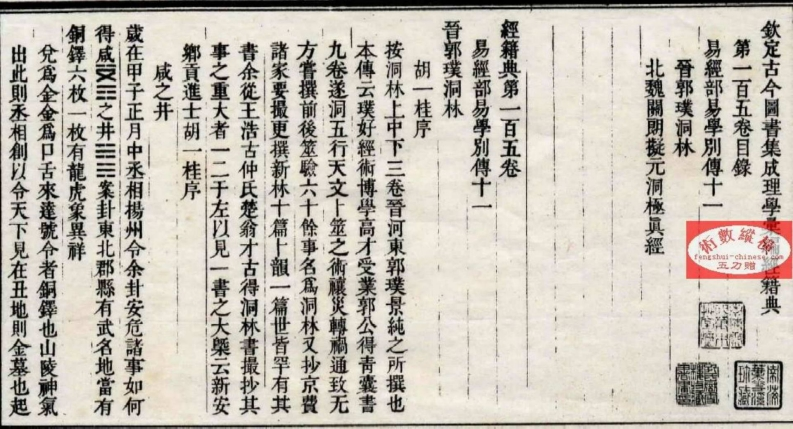 欽定古今圖書集成理學彙編經籍典
第一百五卷目錄
易經部易學別傳十一
晉郭璞洞林
北魏關朗擬元洞極眞經
經籍典第一百五卷
易經部易學別傳十一
晉郭璞洞林
胡一桂序
按洞林上中下三卷晉河東郭璞景純之所撰也
本傳云璞好經術博學高才受業郭公得靑囊書
九卷遂洞五行天文卜筮之術禳災轉禍通致无
方嘗撰前後筮驗六十餘事名爲洞林又抄京費
諸家要撮更撰新林十篇卜韻一篇世皆罕有其
書余從王浩古仲氏楚翁才古得洞林書撮抄其
事之重大者一二于左以見一書之大槩云新安
鄉貢進士胡一桂序
咸之井
歲在甲子正月中丞相揚州令余卦安危諸事如何
得咸之井案卦東北郡縣有武名地當有
銅鐸六枚一枚有龍虎象異祥
兌爲金金爲口舌來達號令者銅鐸也山陵神氣
出此則丞相創以令天下見在丑地則金墓也起
術數縱橫
fengshui-chinese.com
玉刀贈